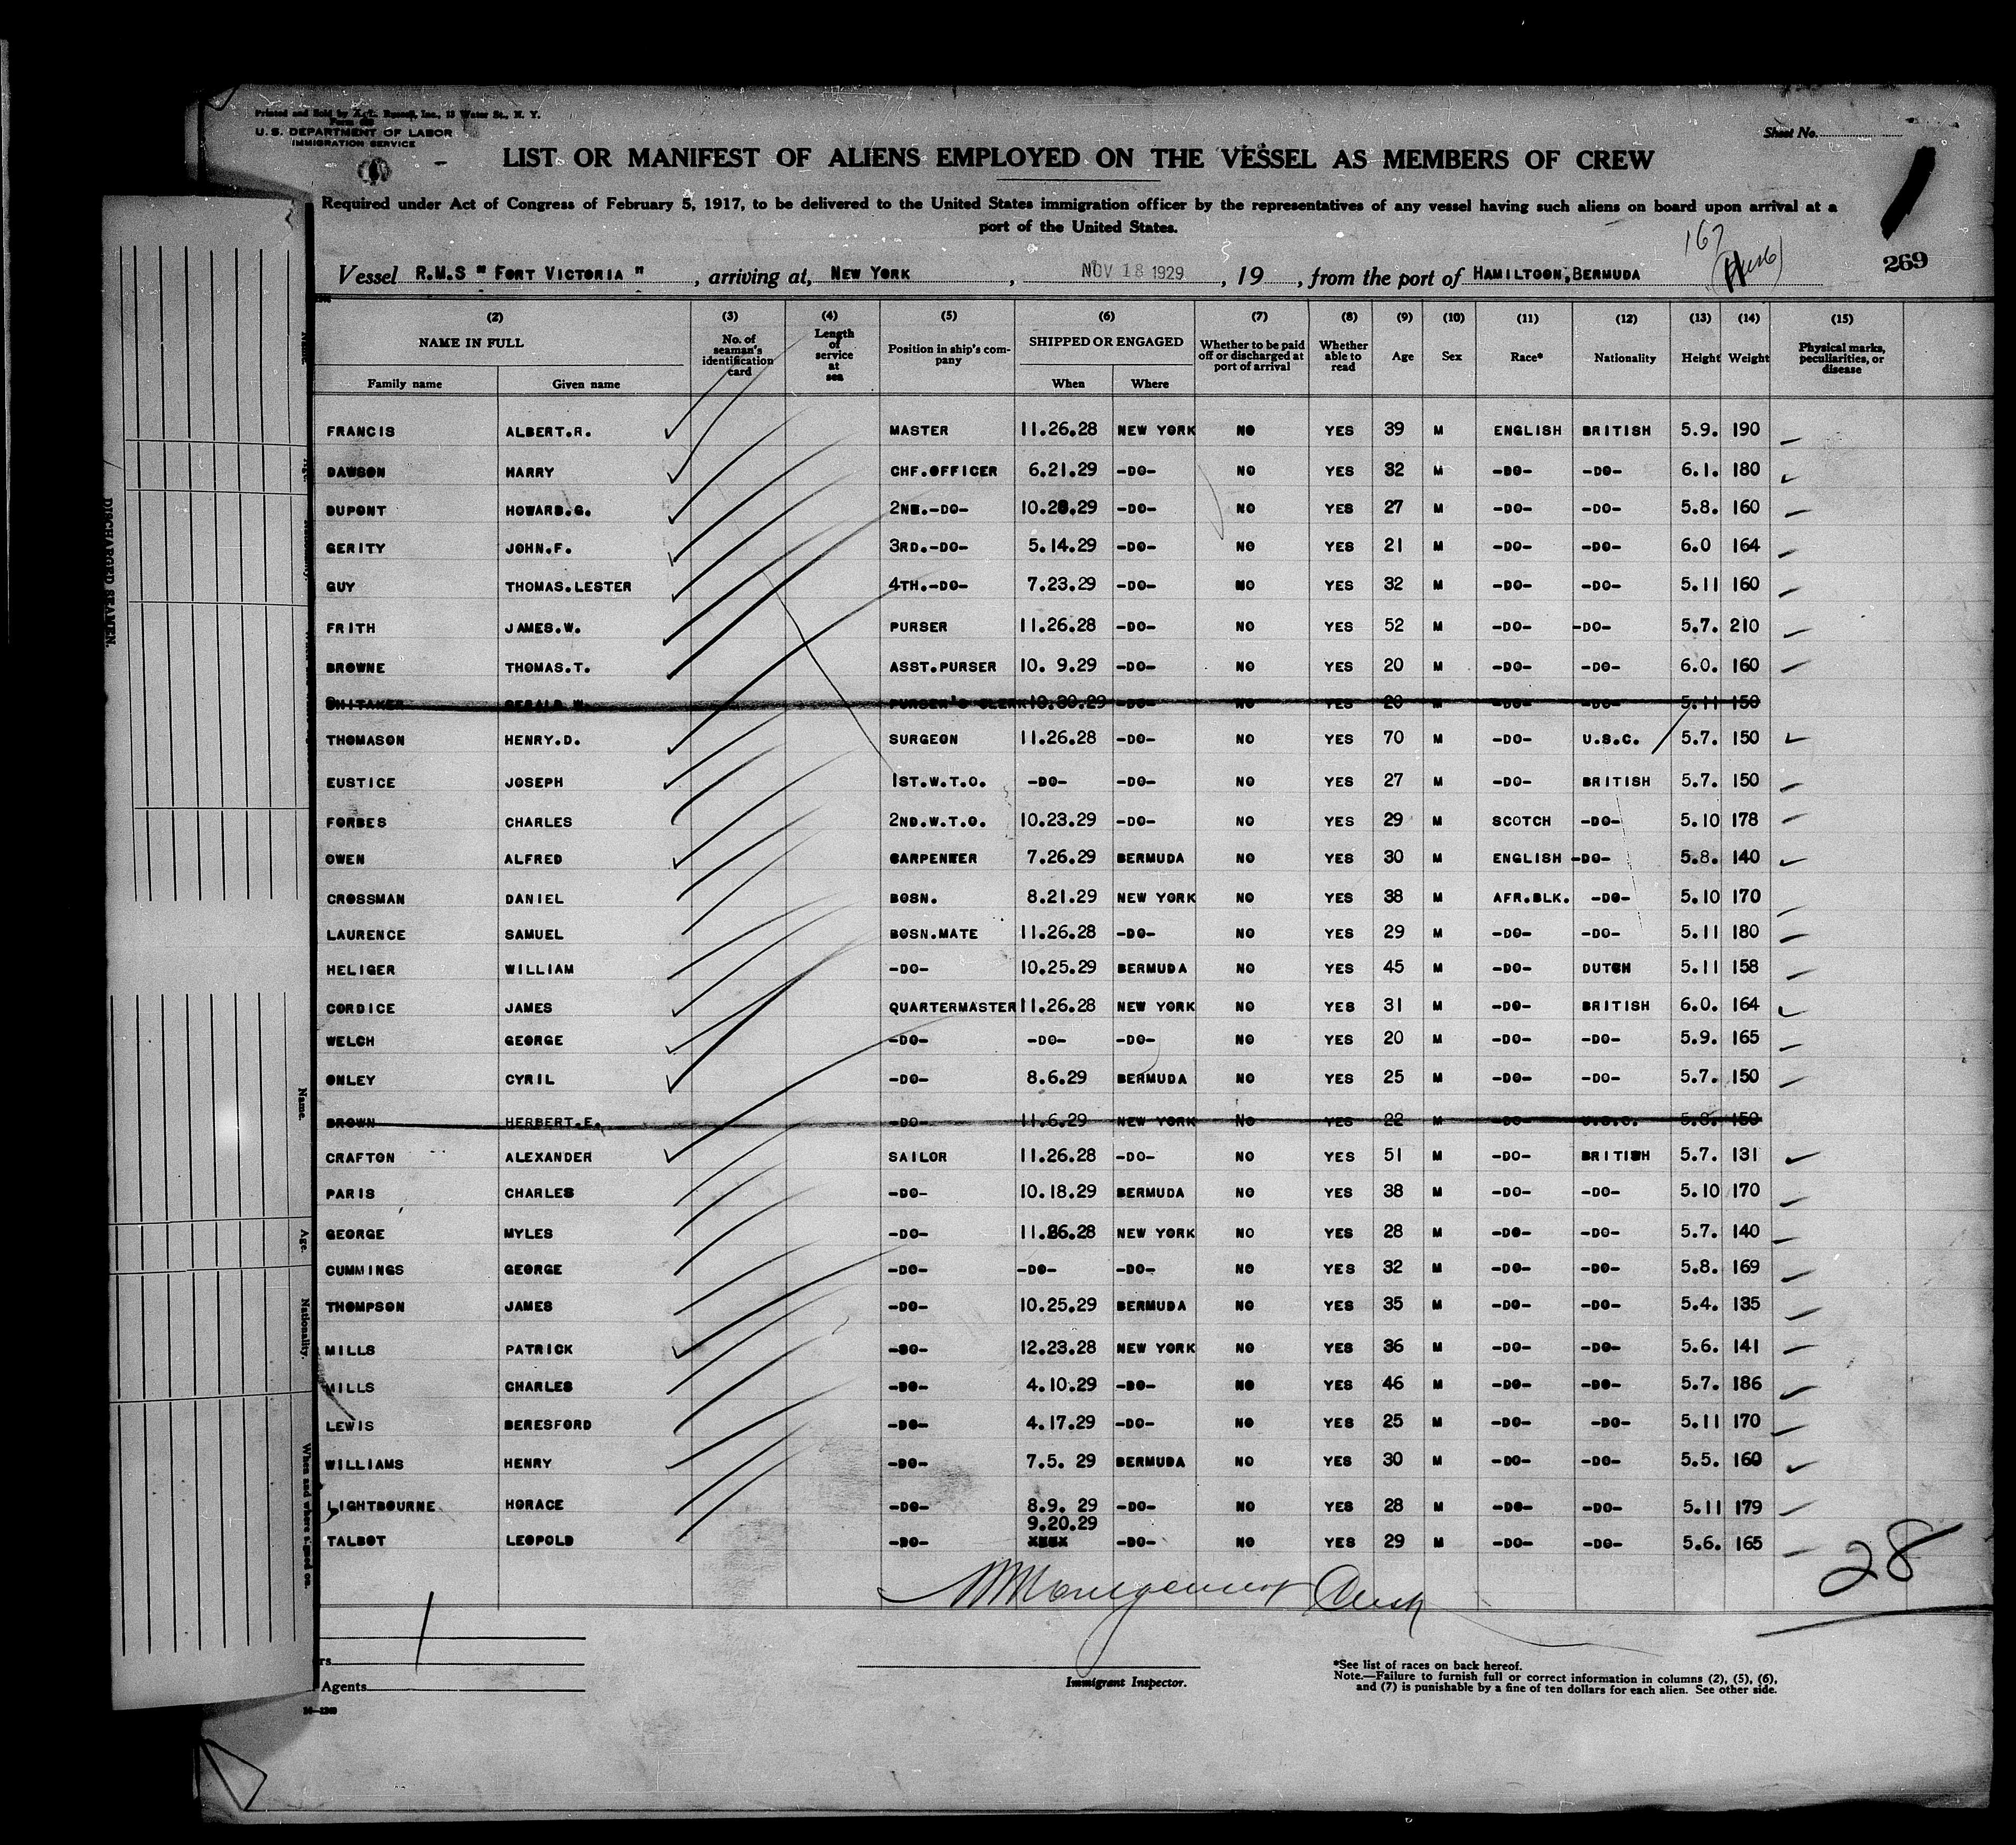 Printed and Sold by A. L. Russell, Inc., 13 Water St., N. Y.
U.S. DEPARTMENT OF LABOR
IMMIGRATION SERVICE
Sheet No.
LIST OR MANIFEST OF ALIENS EMPLOYED ON THE VESSEL AS MEMBERS OF CREW
Required under Act of Congress of February 5, 1917, to be delivered to the United States immigration officer by the representatives of any vessel having such aliens on board upon arrival at a
port of the United States.
167
269
Vessel R.M.S " FORT VICTORIA " , arriving at, NEW YORK , NOV 18 1929 , 19 , from the port of HAMILTOON,BERMUDA
(2) (3) (4) (5) (6) (7) (8) (9) (10) (11) (12) (13) (14) (15)
NAME IN FULL No. of seaman's identification card Length of service at sea Position in ship's company SHIPPED OR ENGAGED Whether to be paid off or discharged at port of arrival Whether able to read Age Sex Race* Nationality Height Weight Physical marks, peculiarities, or disease
Family name Given name When Where
FRANCIS ALBERT.R. MASTER 11.26.28 NEW YORK NO YES 39 M ENGLISH BRITISH 5.9. 190
DAWSON HARRY CHF.OFFICER 6.21.29 -DO- NO YES 32 M -DO- -DO- 6.1. 180
DUPONT HOWARD.G. 2ND.-DO- 10.28.29 -DO- NO YES 27 M -DO- -DO- 5.8. 160
GERITY JOHN.F. 3RD.-DO- 5.14.29 -DO- NO YES 21 M -DO- -DO- 6.0 164
GUY THOMAS.LESTER 4TH.-DO- 7.23.29 -DO- NO YES 32 M -DO- -DO- 5.11 160
FRITH JAMES.W. PURSER 11.26.28 -DO- NO YES 52 M -DO- -DO- 5.7. 210
BROWNE THOMAS.T. ASST.PURSER 10. 9.29 -DO- NO YES 20 M -DO- -DO- 6.0. 160
PURSER'S CLERK 10.30.29 -DO- NO YES 20 M -DO- -DO- 5.11 150
THOMASON HENRY.D. SURGEON 11.26.28 -DO- NO YES 70 M -DO- U.S.C. 5.7. 150
EUSTICE JOSEPH 1ST.W.T.O. -DO- -DO- NO YES 27 M -DO- BRITISH 5.7. 150
FORBES CHARLES 2ND.W.T.O. 10.23.29 -DO- NO YES 29 M SCOTCH -DO- 5.10 178
OWEN ALFRED CARPENTER 7.26.29 BERMUDA NO YES 30 M ENGLISH -DO- 5.8. 140
CROSSMAN DANIEL BOSN. 8.21.29 NEW YORK NO YES 38 M AFR.BLK. -DO- 5.10 170
LAURENCE SAMUEL BOSN.MATE 11.26.28 -DO- NO YES 29 M -DO- -DO- 5.11 180
HELIGER WILLIAM -DO- 10.25.29 BERMUDA NO YES 45 M -DO- DUTCH 5.11 158
CORDICE JAMES QUARTERMASTER 11.26.28 NEW YORK NO YES 31 M -DO- BRITISH 6.0. 164
WELCH GEORGE -DO- -DO- -DO- NO YES 20 M -DO- -DO- 5.9. 165
ONLEY CYRIL -DO- 8.6.29 BERMUDA NO YES 25 M -DO- -DO- 5.7. 150
BROWN HERBERT.E. -DO- 11.6.29 NEW YORK NO YES 22 M -DO- U.S.C. 5.8. 150
CRAFTON ALEXANDER SAILOR 11.26.28 -DO- NO YES 51 M -DO- BRITISH 5.7. 131
PARIS CHARLES -DO- 10.18.29 BERMUDA NO YES 38 M -DO- -DO- 5.10 170
GEORGE MYLES -DO- 11.26.28 NEW YORK NO YES 28 M -DO- -DO- 5.7. 140
CUMMINGS GEORGE -DO- -DO- -DO- NO YES 32 M -DO- -DO- 5.8. 169
THOMPSON JAMES -DO- 10.25.29 BERMUDA NO YES 35 M -DO- -DO- 5.4. 135
MILLS PATRICK -DO- 12.23.28 NEW YORK NO YES 36 M -DO- -DO- 5.6. 141
MILLS CHARLES -DO- 4.10.29 -DO- NO YES 46 M -DO- -DO- 5.7. 186
LEWIS BERESFORD -DO- 4.17.29 -DO- NO YES 25 M -DO- -DO- 5.11 170
WILLIAMS HENRY -DO- 7.5. 29 BERMUDA NO YES 30 M -DO- -DO- 5.5. 160
LIGHTBOURNE HORACE -DO- 8.9. 29 -DO- NO YES 28 M -DO- -DO- 5.11 179
9.20.29
TALBOT LEOPOLD -DO- xxxx -DO- NO YES 29 M -DO- -DO- 5.6. 165
28
rs
Agents
Immigrant Inspector.
*See list of races on back hereof.
Note.—Failure to furnish full or correct information in columns (2), (5), (6),
and (7) is punishable by a fine of ten dollars for each alien. See other side.
DISCHARGED SEAMEN.
Name.
Age.
Nationality.
When and where signed on.